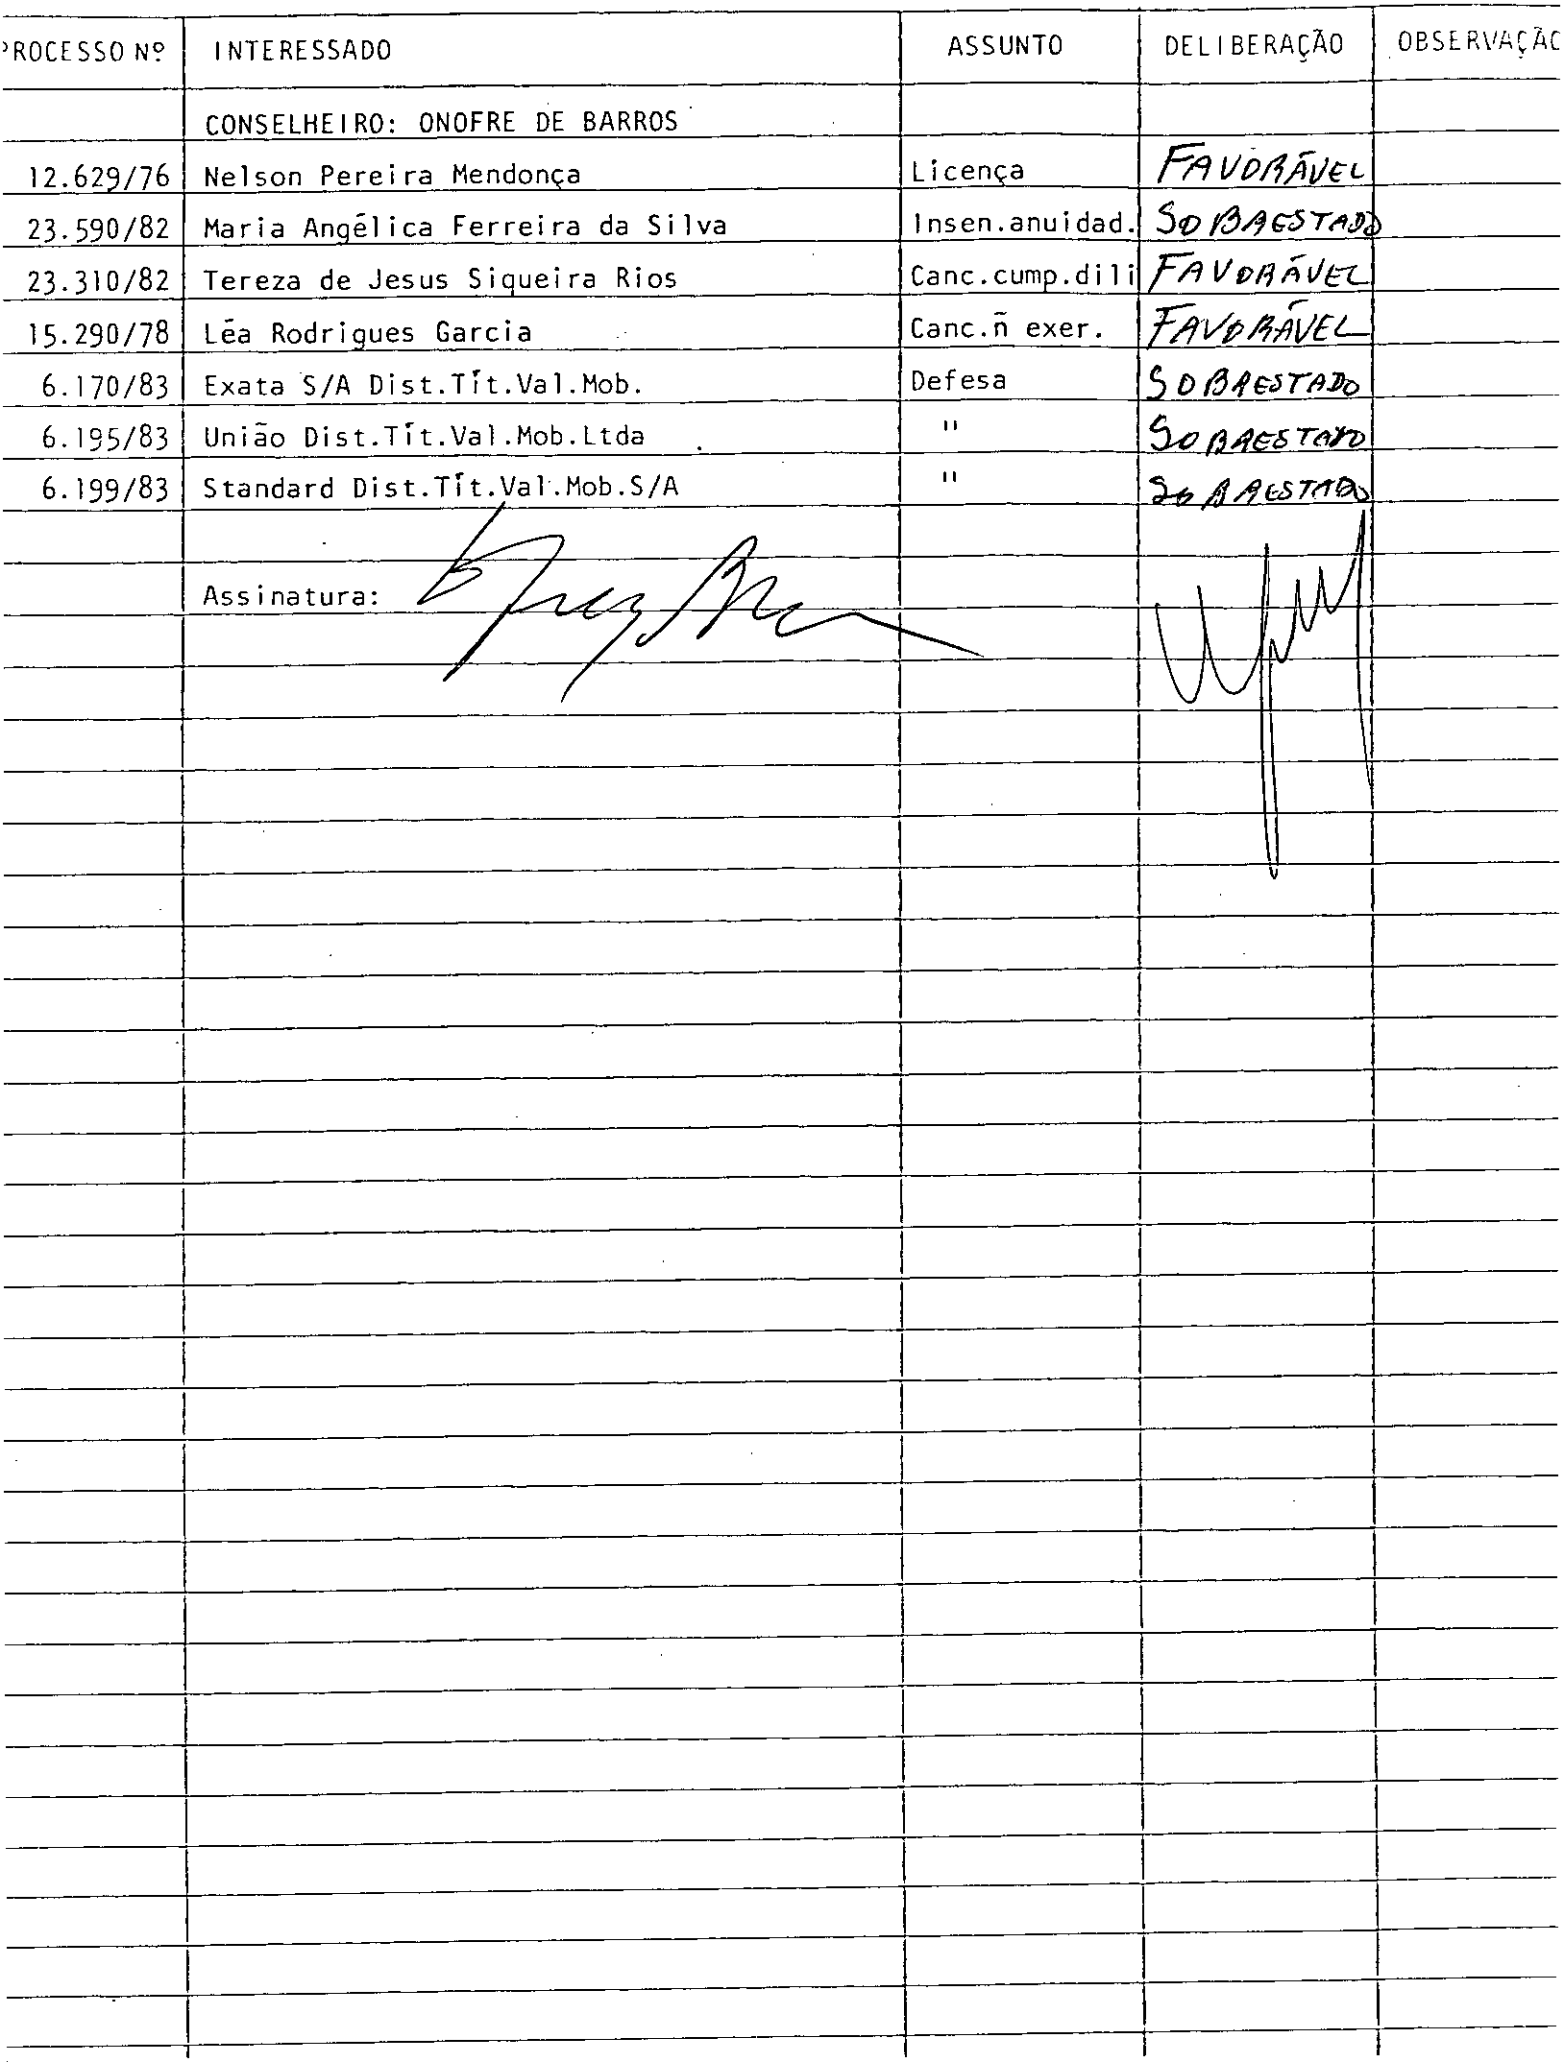 PROCESSO Nº INTERESSADO ASSUNTO DELIBERAÇÃO OBSERVAÇÃO
CONSELHEIRO: ONOFRE DE BARROS
12.629/76 Nelson Pereira Mendonça Licença FAVORÁVEL
23.590/82 Maria Angélica Ferreira da Silva Insen.anuidad. SOBRESTADO
23.310/82 Tereza de Jesus Siqueira Rios Canc.cump.dili FAVORÁVEL
15.290/78 Léa Rodrigues Garcia Canc.ñ exer. FAVORÁVEL
6.170/83 Exata S/A Dist.Tít.Val.Mob. Defesa SOBRESTADO
6.195/83 União Dist.Tít.Val.Mob.Ltda " SOBRESTADO
6.199/83 Standard Dist.Tít.Val.Mob.S/A " SOBRESTADO
Assinatura: